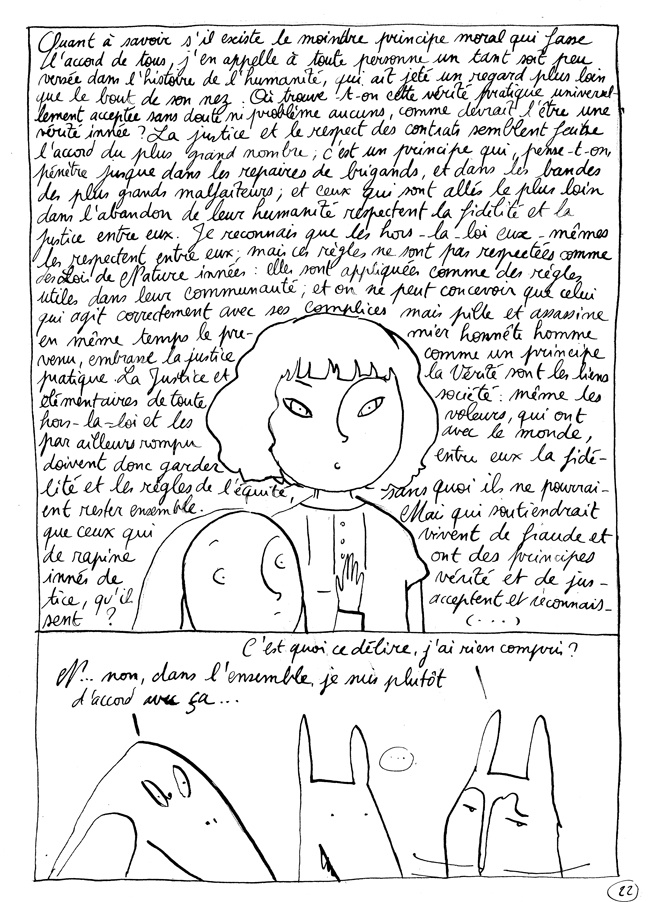 Quant à savoir s'il existe le moindre principe moral qui fasse
l'accord de tous, j'en appelle à toute personne un tant soit peu
versée dans l'histoire de l'humanité, qui ait jeté un regard plus loin
que le bout de son nez. Où trouve-t-on cette vérité pratique universel-
lement acceptée sans doute ni problème aucuns, comme devrait l'être une
vérité innée ? La justice et le respect des contrats semblent faire
l'accord du plus grand nombre ; c'est un principe qui, pense-t-on,
pénètre jusque dans les repaires de brigands, et dans les bandes
des plus grands malfaiteurs ; et ceux qui sont allés le plus loin
dans l'abandon de leur humanité respectent la fidélité et la
justice entre eux. Je reconnais que les hors-la-loi eux-mêmes
les respectent entre eux ; mais ces règles ne sont pas respectées comme
des Lois de Nature innées : elles sont appliquées comme des règles
utiles dans leur communauté ; et on ne peut concevoir que celui
qui agit correctement avec ses complices mais pille et assassine
en même temps le pre- mier honnête homme
venu, embrasse la justice comme un principe
pratique. La Justice et la Vérité sont les liens
élémentaires de toute société : même les
hors-la-loi et les voleurs, qui ont
par ailleurs rompu avec le monde,
doivent donc garder entre eux la fidé-
lité et les règles de l'équité, sans quoi ils ne pourrai-
ent rester ensemble. Mai qui soutiendrait
que ceux qui vivent de fraude et
de rapine ont des principes
innés de vérité et de jus-
tice, qu'ils acceptent et reconnais-
sent ? (...)
C'est quoi ce délire, j'ai rien compris ?
N... non, dans l'ensemble, je suis plutôt
d'accord avec ça...
...
22